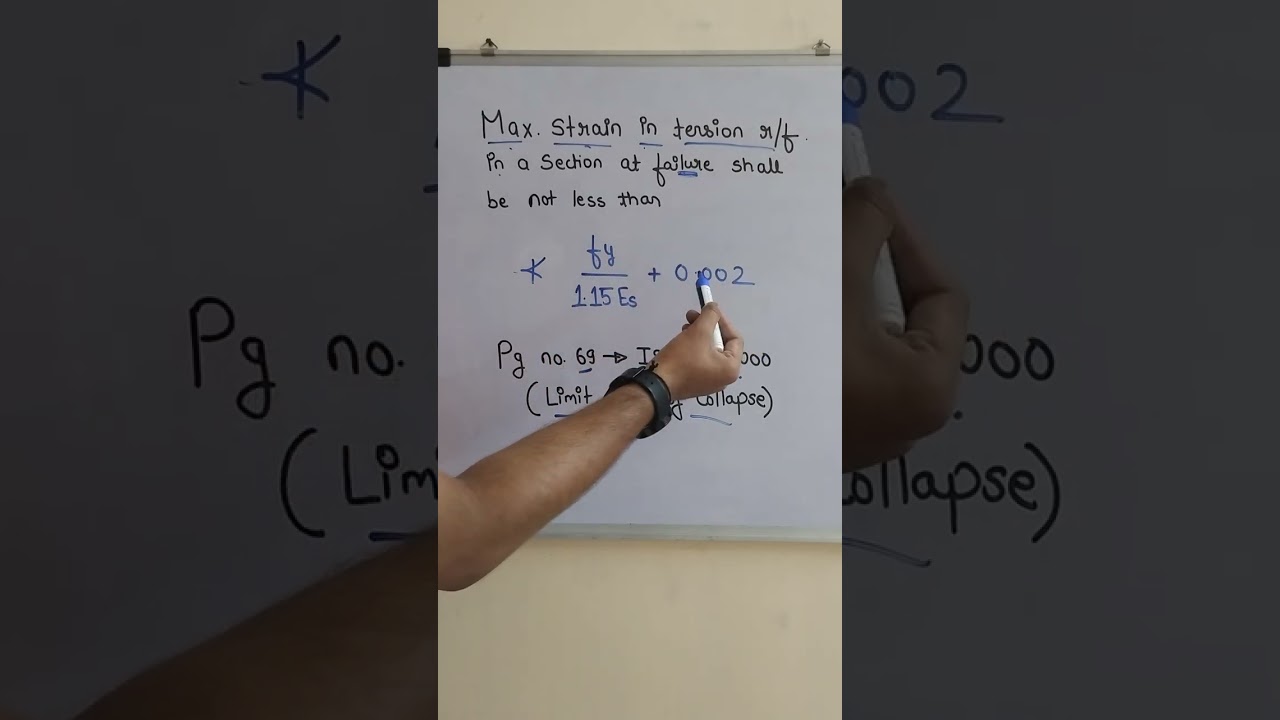 Max. Strain in tension r/f.
in a Section at failure shall
be not less than
≮ fy
1.15 Es
+ 0.002
Pg no. 69 → 000
(Limit Collapse)